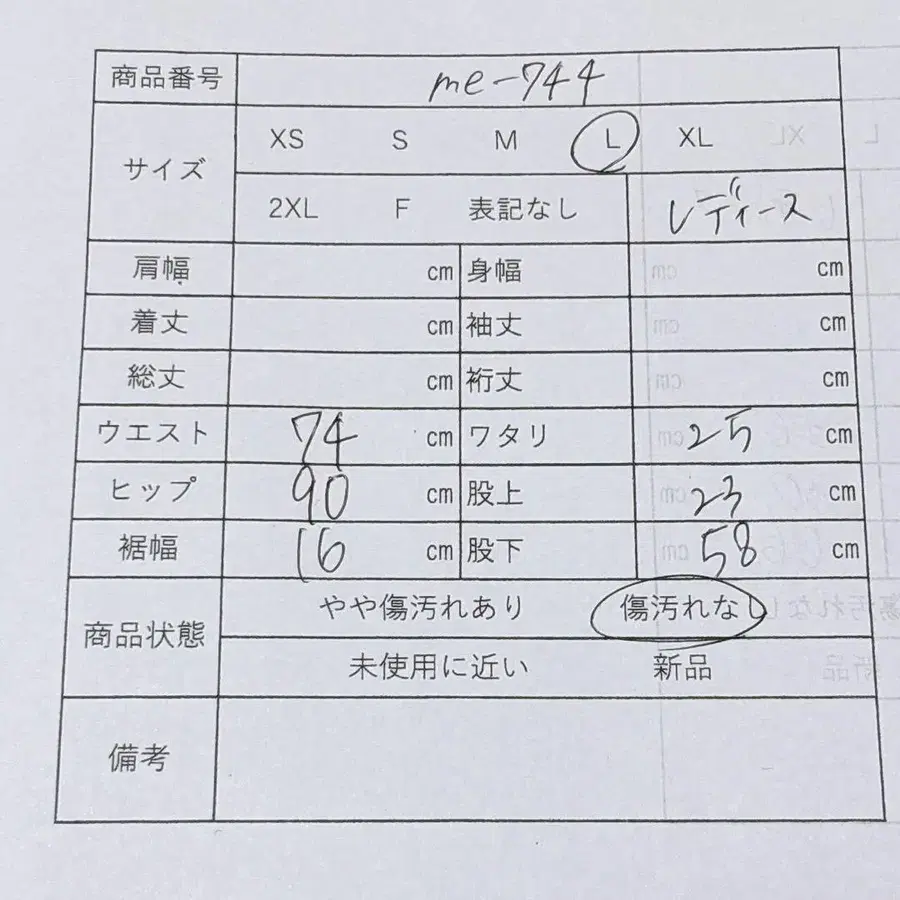 商品番号 me-744
サイズ XS S M L XL
2XL F 表記なし レディース
肩幅 cm 身幅 cm
着丈 cm 袖丈 cm
総丈 cm 裄丈 cm
ウエスト 74 cm ワタリ 25 cm
ヒップ 90 cm 股上 23 cm
裾幅 16 cm 股下 58 cm
商品状態 やや傷汚れあり 傷汚れなし
未使用に近い 新品
備考